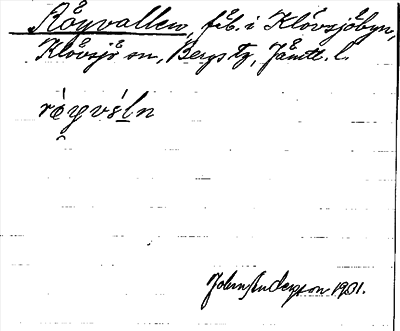 Röyvallen, fåb. i Klövsjöbyn,
Klövsjö sn, Bergs tg, Jämtl. l.
John Anderson 1931.